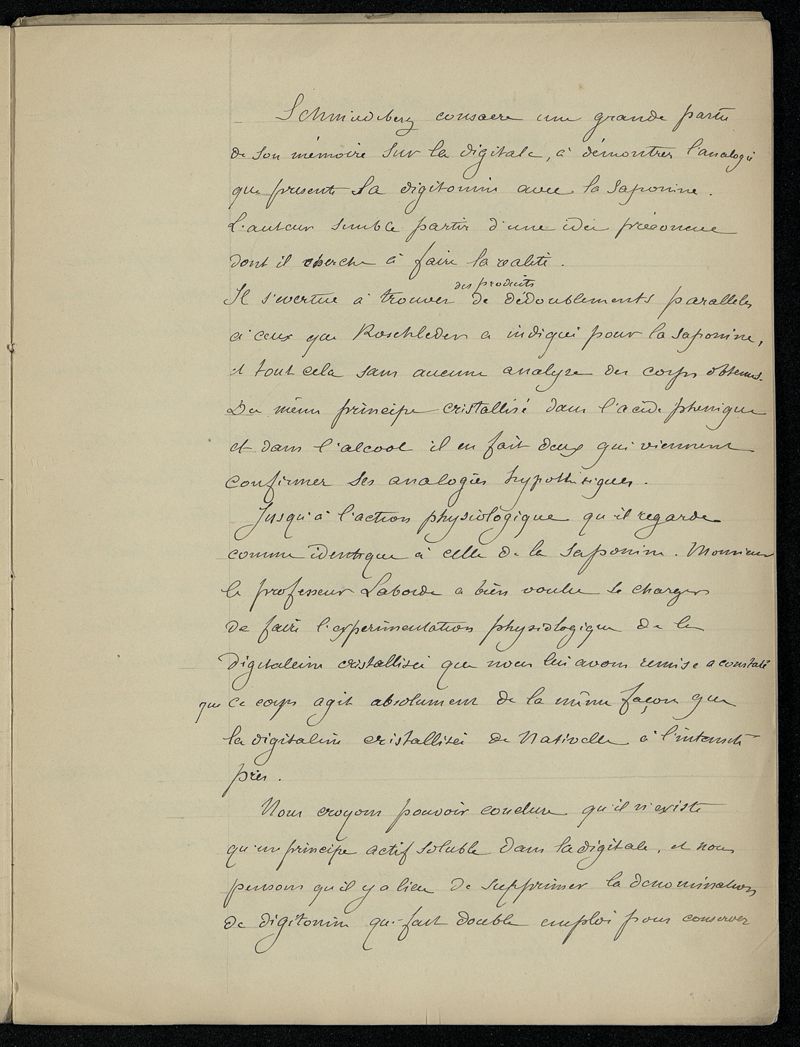 Schmiedeberg consacre une grande partie
de son mémoire sur la digitale, à démontrer l'analogie
que présente la digitonine avec la saponine.
L'auteur semble partir d'une idée préconcue
dont il cherche à faire la réalité.
Il s'évertue à trouver des produits de dédoublements parallèles
à ceux que Rochleder a indiqué pour la saponine,
et tout cela sans aucune analyse des corps obtenus.
Du même principe cristallisé dans l'acide phénique
et dans l'alcool il en fait deux qui viennent
confirmer ses analogies hypothétiques.
Jusqu'à l'action physiologique qu'il regarde
comme identique à celle de la saponine. Monsieur
le professeur Laborde a bien voulu se charger
de faire l'expérimentation physiologique de la
digitaleine cristallisée que nous lui avons remise a constaté
que ce corps agit absolument de la même façon que
la digitaline cristallisée de Nativelle à l'intensité
près.
Nous croyons pouvoir conclure qu'il n'existe
qu'un principe actif soluble dans la digitale, et nous
pensons qu'il y a lieu de supprimer la dénomination
de digitonine qui fait double emploi pour conserver